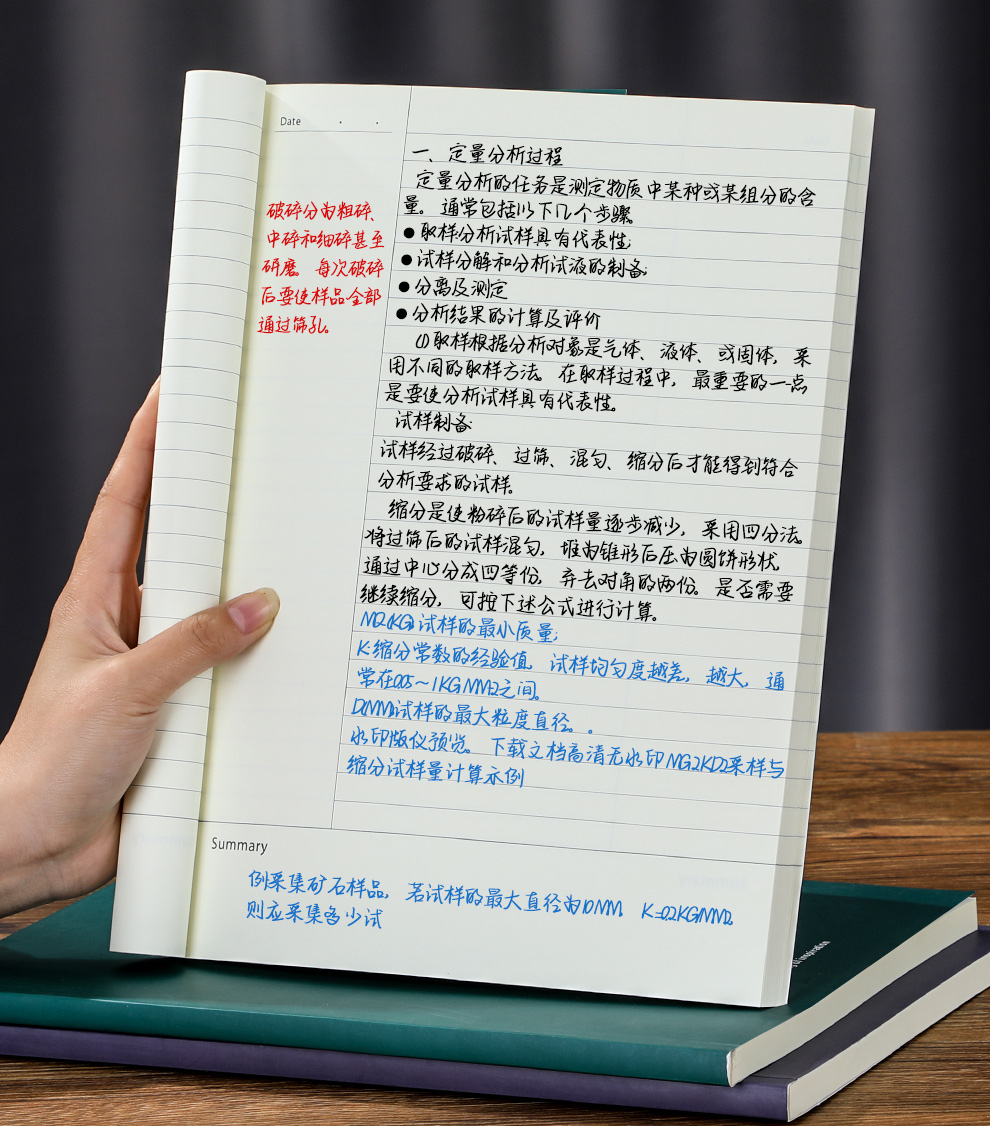 Date
破碎分为粗碎、
中碎和细碎甚至
研磨。每次破碎
后要使样品全部
通过筛孔。
一、定量分析过程
定量分析的任务是测定物质中某种或某组分的含
量。通常包括以下几个步骤。
●取样分析试样具有代表性;
●试样分解和分析试液的制备;
●分离及测定
●分析结果的计算及评价
(1)取样根据分析对象是气体、液体、或固体,采
用不同的取样方法。在取样过程中,最重要的一点
是要使分析试样具有代表性。
试样制备:
试样经过破碎、过筛、混匀、缩分后才能得到符合
分析要求的试样。
缩分是使粉碎后的试样量逐步减少,采用四分法。
将过筛后的试样混匀,堆为锥形后压为圆饼形状,
通过中心分成四等份,弃去对角的两份。是否需要
继续缩分,可按下述公式进行计算。
NQ2(KG)试样的最小质量;
K:缩分常数的经验值,试样均匀度越差,越大,通
常在0.05~1KGMM2之间。
D(MM)试样的最大粒度直径。。
水印版仅预览。下载文档高清无水印NG2KD2采样与
缩分试样量计算示例
Summary
例采集矿石样品,若试样的最大直径为10MM, K=0.2KG/MM2,
则应采集多少试
of inspiration